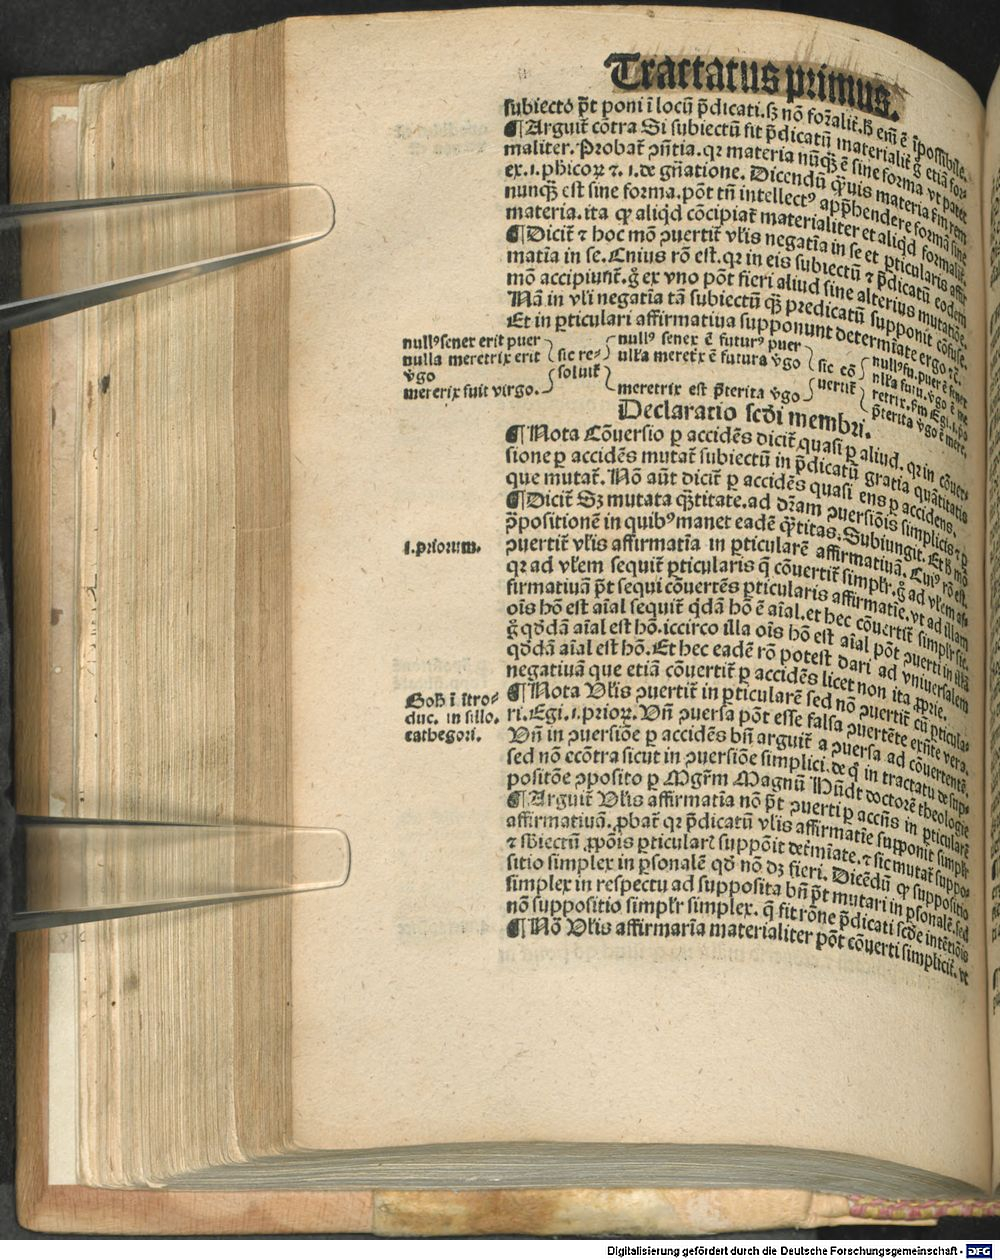 Tractatus primus.
subiecto p̄t poni ī locū p̄dicati. sꝫ nō for̄alit̄. h̄ em̄ ē īpossibile.
¶ Arguit̄ cōtra Si subiectū sit p̄dicatū materialit̄ g̊ etiā for-
maliter. Probat̄ ꝯn̄tia. qꝛ materia nūqꝫ ē sine forma vt patet
ex .1. phicoꝝ ⁊ .1. de gn̄atione. Dicendū qꝫuis materia fm̄ rem
nunqꝫ est sine forma. pōt tn̄ intellectꝰ app̄hendere formā sine
materia. ita ꝙ aliqd cōcipiat̄ materialiter et aliqd formalit̄.
¶ Dicit̄ ⁊ hoc mō ꝯuertit̄ vl̄is negatīa in se et ꝑticularis affir
matīa in se. Cuius rō est. qꝛ in eis subiectū ⁊ p̄dicatū eodem
mō accipiunt̄. g̊ ex vno pōt fieri aliud sine alterius mutatiōe.
Nā in vl̄i negatīa tā subiectū qꝫ predicatū supponit cōfuse.
Et in ꝑticulari affirmatiua supponunt determīate ergo ⁊c̄.
nullꝰ senex erit puer
nulla meretrix erit
v̄go
mererix fuit virgo.
sic re-
soluit̄
nullꝰ senex ē futurꝰ puer
ulla meret̄x ē futura v̄go
meretrix est p̄terita v̄go
sic cō
uertit̄
nullꝰ fu. puer ē senex
nl̄la futu. v̄go ē me
retrix. fm̄ Egi. 1. p̄o
p̄terita v̄go ē mere.
Declaratio scd̄i membri.
¶ Nota Cōuersio ꝑ accidēs dicit̄ quasi ꝑ aliud. qꝛ in cōuer-
sione ꝑ accidēs mutat̄ subiectū in p̄dicatū gratia quātitatis
que mutat̄. Nō aūt dicit̄ ꝑ accidēs quasi ens ꝑ accidens.
¶ Dicit̄ Sꝫ mutata qꝫtitate. ad dr̄am ꝯuersiōis simplicis ⁊ ꝑ
p̄positionē in quibꝰ manet eadē qꝫtitas. Subiungit. Et h̄ mō
1. priorum.
ꝯuertit̄ vl̄is affirmatīa in ꝑticularē affirmatiuā. Cuiꝰ rō est.
qꝛ ad vl̄em sequit̄ ꝑticularis q̄ cōuertit̄ simpl̄r. g̊ ad vl̄em af-
firmatiuā p̄t sequi cōuertēs ꝑticularis affirmatīe. vt ad illam
oīs hō est aīal sequit̄ qd̄ā hō ē aīal. et hec cōuertit̄ simpl̄r sic.
g̊ qd̄dā aīal est hō. iccirco illa oīs hō est aīal pōt ꝯuerti in illā
qd̄dā aīal est hō. Et hec eadē rō potest dari ad vniuersalem
negatiuā que etiā cōuertit̄ ꝑ accidēs licet non ita ꝓprie.
Boh̄ ī ītro-
duc. in sillo.
cathegori.
¶ Nota Vl̄is ꝯuertit̄ in ꝑticularē sed nō ꝯuertit̄ cū ꝑticula-
ri. Egi. 1. prioꝝ. Vn̄ ꝯuersa pōt esse falsa ꝯuertēte exn̄te vera.
Vn̄ in ꝯuersiōe ꝑ accidēs bn̄ arguit̄ a ꝯuersa ad cōuertentē.
sed nō ecōtra sicut in ꝯuersiōe simplici. de q̊ in tractatu de sup-
positōe ꝯposito ꝑ Mgr̄m Magnū Hūdt doctorē theologie
¶ Arguit̄ Vl̄is affirmatīa nō p̄t ꝯuerti ꝑ accn̄s in ꝑticularē
affirmatiuā. ꝓbat̄ qꝛ p̄dicatū vl̄is affirmatīe supponit simpl̄r
⁊ sb̄iectū ꝓpōis ꝑticularꝭ suppōit det̄mīate. ⁊ sic mutat̄ suppo-
sitio simplex in ꝑsonalē qd̄ nō dꝫ fieri. Dicēdū ꝙ suppositio
simplex in respectu ad supposita bn̄ p̄t mutari in ꝑsonalē. sed
nō suppositio simpl̄r simplex. q̄ fit rōne p̄dicati scd̄e intētiōis
¶ Nō Vl̄is affirmaria materialiter pōt cōuerti simplicit̄. vt
Digitalisierung gefördert durch die Deutsche Forschungsgemeinschaft - DFG